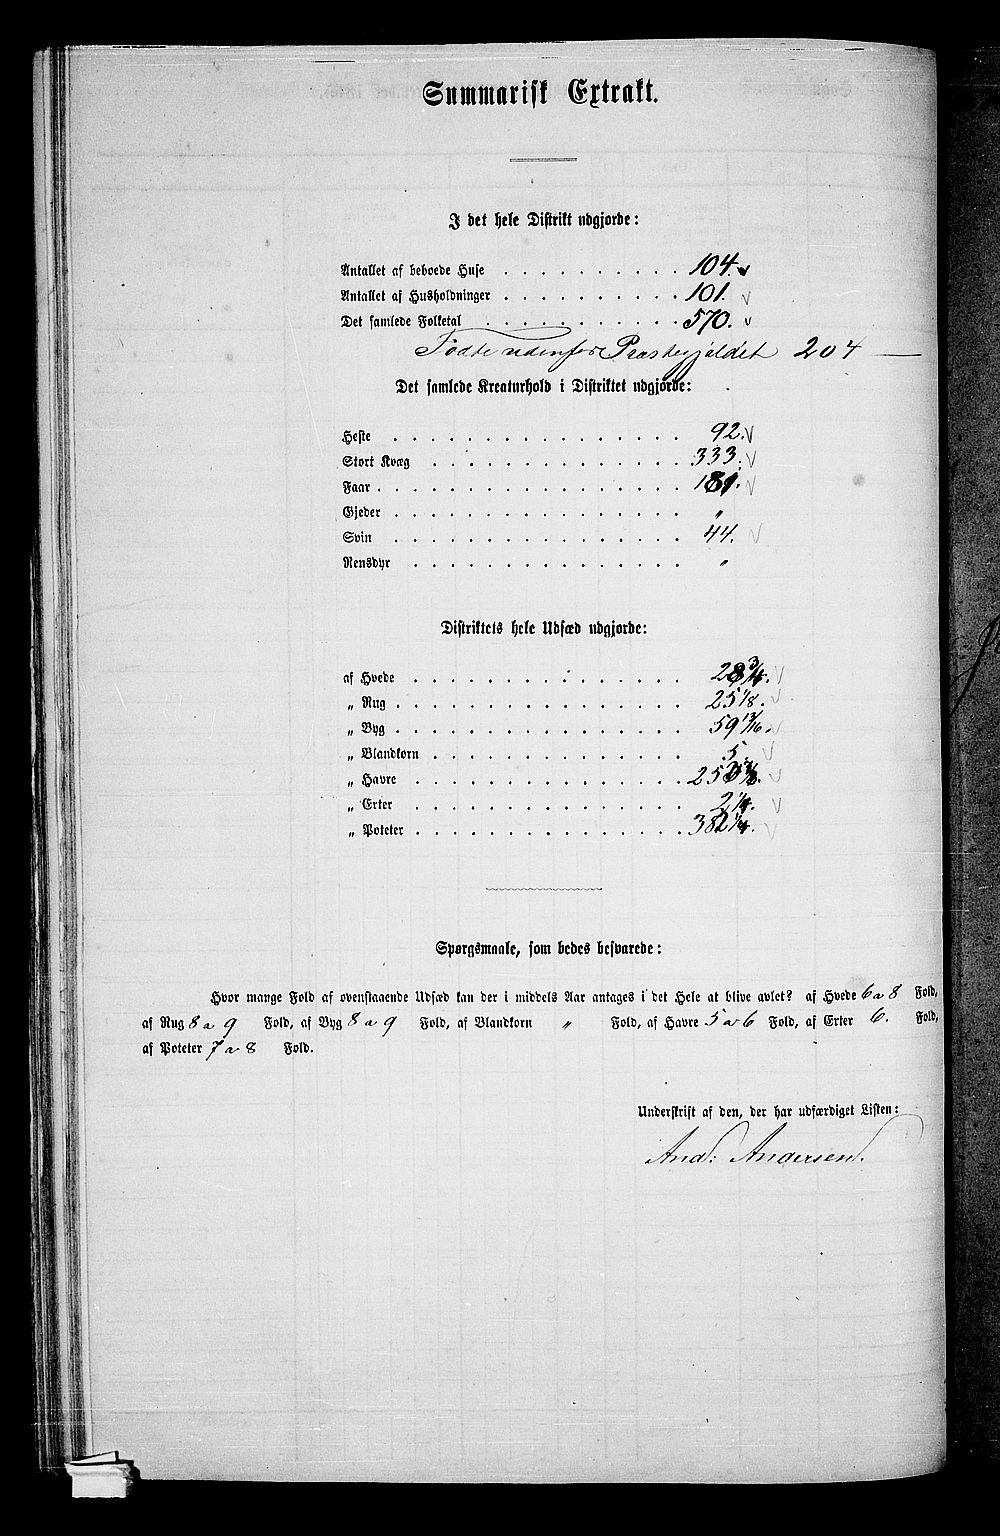 Summarisk Extrakt.
I det hele Distrikt udgjorde:
Antallet af beboede Huse . . . . . . . . . . 104. v
Antallet af Husholdninger . . . . . . . . . . 101. v
Det samlede Folketal . . . . . . . . . . 570. v
Fødte udenfor Præstegjeldet 204 —
Det samlede Kreaturhold i Distriktet udgjorde:
Heste . . . . . . . . . . . . . 92. v
Stort Kvæg . . . . . . . . . . . . 333. v
Faar . . . . . . . . . . . . . . 181. v
Gjeder . . . . . . . . . . . . . „
Svin . . . . . . . . . . . . . 44. v
Rensdyr . . . . . . . . . . . . „
Distriktets hele Udsæd udgjorde:
af Hvede . . . . . . . . . . . . 28 3/4. v
„ Rug . . . . . . . . . . . . . 25 1/8. v
„ Byg . . . . . . . . . . . . . 59 13/16. v
„ Blandkorn . . . . . . . . . . . 5. v
„ Havre . . . . . . . . . . . . v
„ Erter . . . . . . . . . . . . 2 1/4. v
„ Poteter . . . . . . . . . . . . 382 1/4. v
Spørgsmaale, som bedes besvarede:
Hvor mange Fold af ovenstaaende Udsæd kan der i middels Aar antages i det Hele at blive avlet? af Hvede 6 a 8 Fold,
af Rug 8 a 9 Fold, af Byg 8 a 9 Fold, af Blandkorn „ Fold, af Havre 5 a 6 Fold, af Erter 6. Fold,
af Poteter 7 a 8 Fold.
Underskrift af den, der har udfærdiget Listen:
And: Andersen.